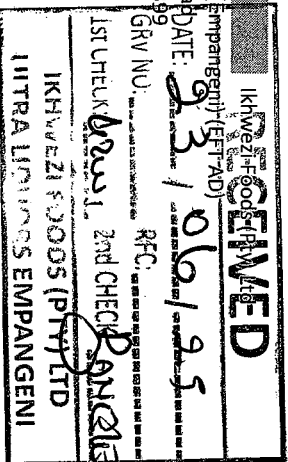 Ikhwezi Foods (Pty) Ltd
RECEIVED
Empangeni) (EFT-AD)
DATE: 23/06/25
99
GRV NO:
RFC:
1st CHECK
2nd CHECK
IKHWEZI FOODS (PTY) LTD
ULTRA LIQUORS EMPANGENI